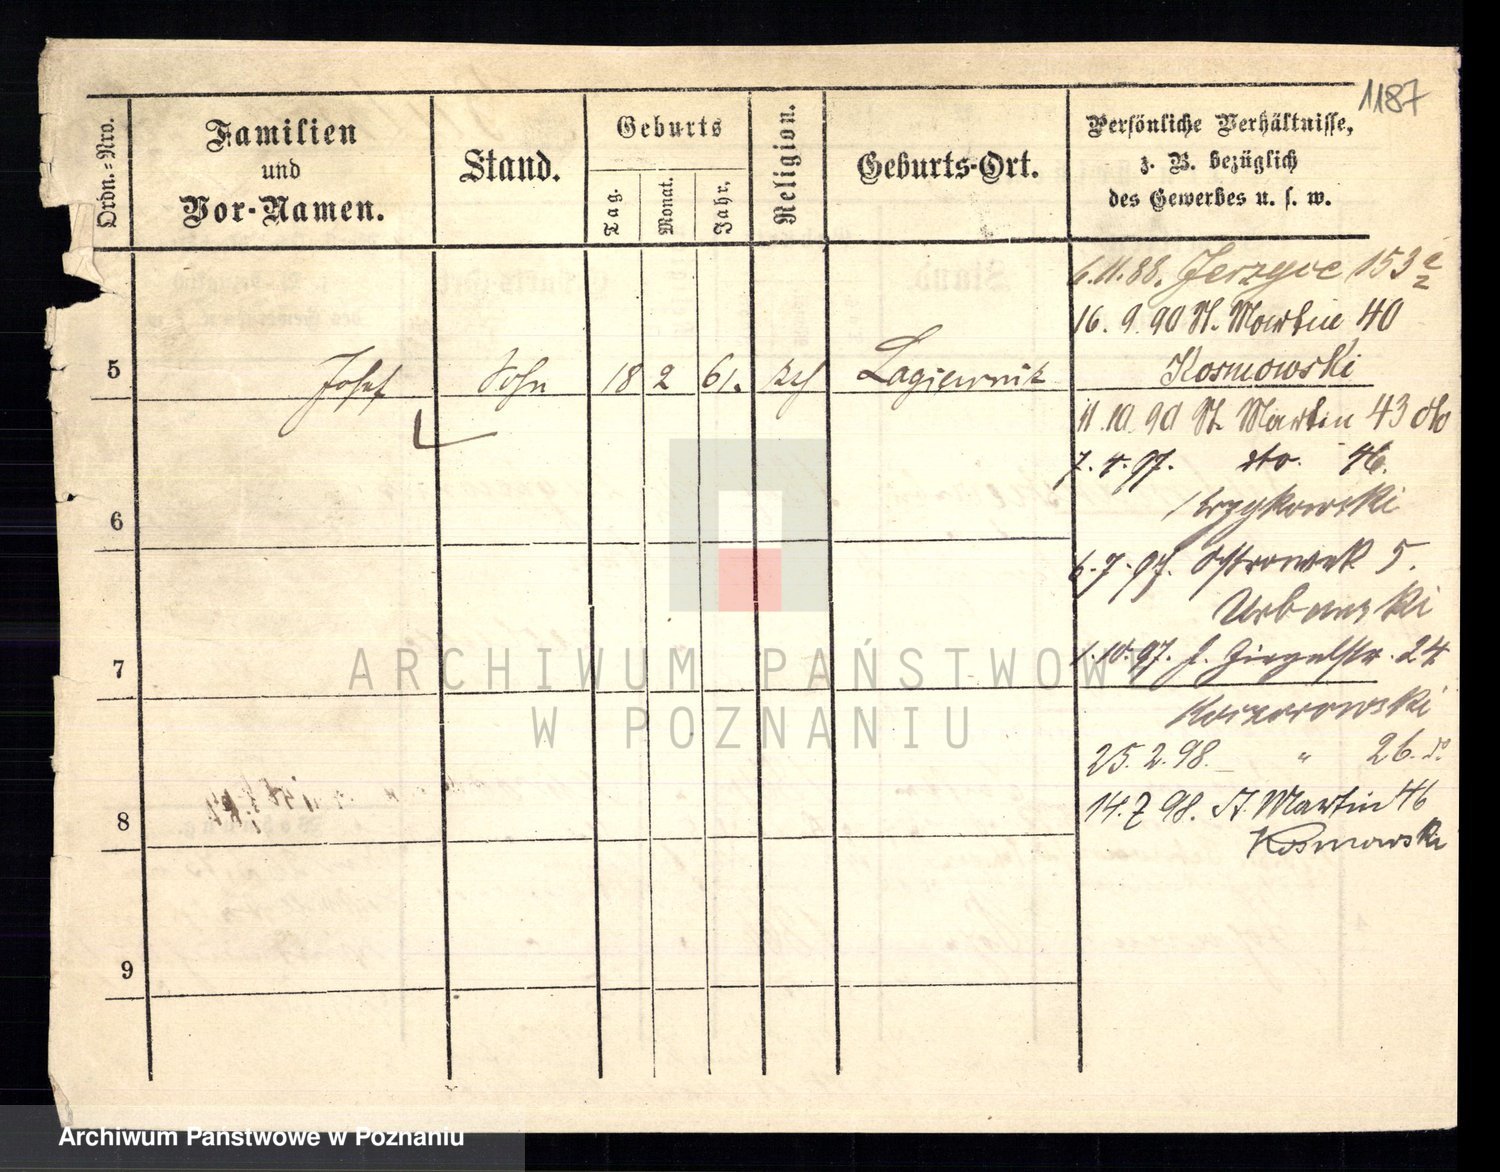 1187
Ordn.-Nro.
Familien
und
Vor-Namen.
Stand.
Geburts
Tag.
Monat.
Jahr.
Religion.
Geburts-Ort.
Persönliche Verhältnisse,
z. B. bezüglich
des Gewerbes u. s. w.
6.11.88. Jerzyce 153
16. 9. 90 St. Martin 40
Kosmowski
5 Josef Sohn 18 2 61. kth Lagiewnik
11.10.90 St. Martin 43
7.4.97. dto. 46.
6
6.7.97. Ostrowek 5.
Urbanski
7
1.10.97. Ziegelstr. 24
25.2.98. " 26.
14.7.98. St Martin 46
Kosmowski
8
9
ARCHIWUM PAŃSTWOWE
W POZNANIU
Archiwum Państwowe w Poznaniu